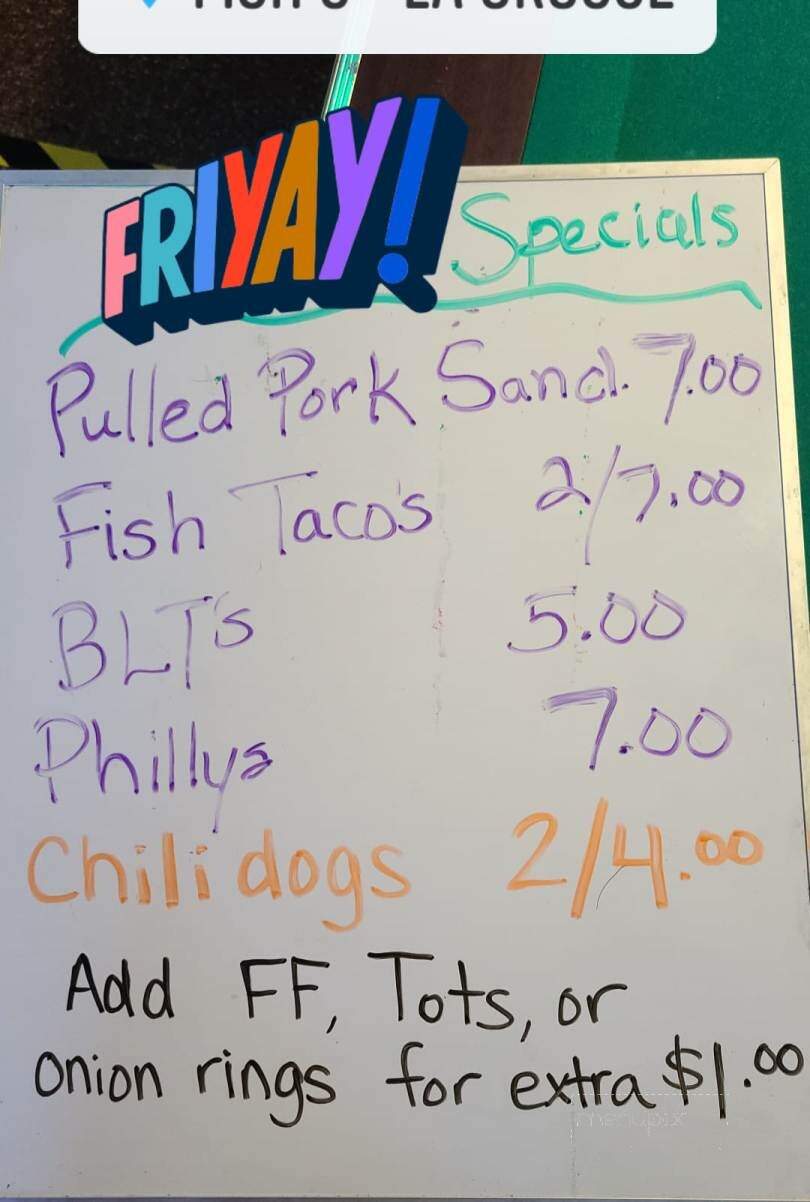 FRIYAY! Specials
Pulled Pork Sand. 7.00
Fish Taco's 2/7.00
BLT's 5.00
Phillys 7.00
Chili dogs 2/4.00
Add FF, Tots, or
onion rings for extra $1.00
menupix